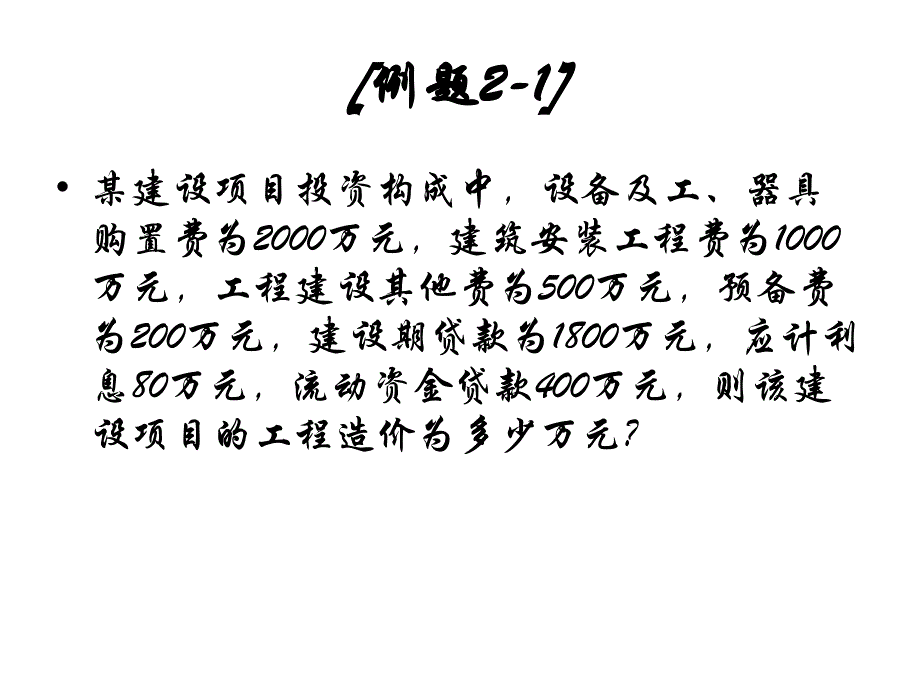 [例题2-1]
• 某建设项目投资构成中，设备及工、器具
购置费为2000万元，建筑安装工程费为1000
万元，工程建设其他费为500万元，预备费
为200万元，建设期贷款为1800万元，应计利
息80万元，流动资金贷款400万元，则该建
设项目的工程造价为多少万元？